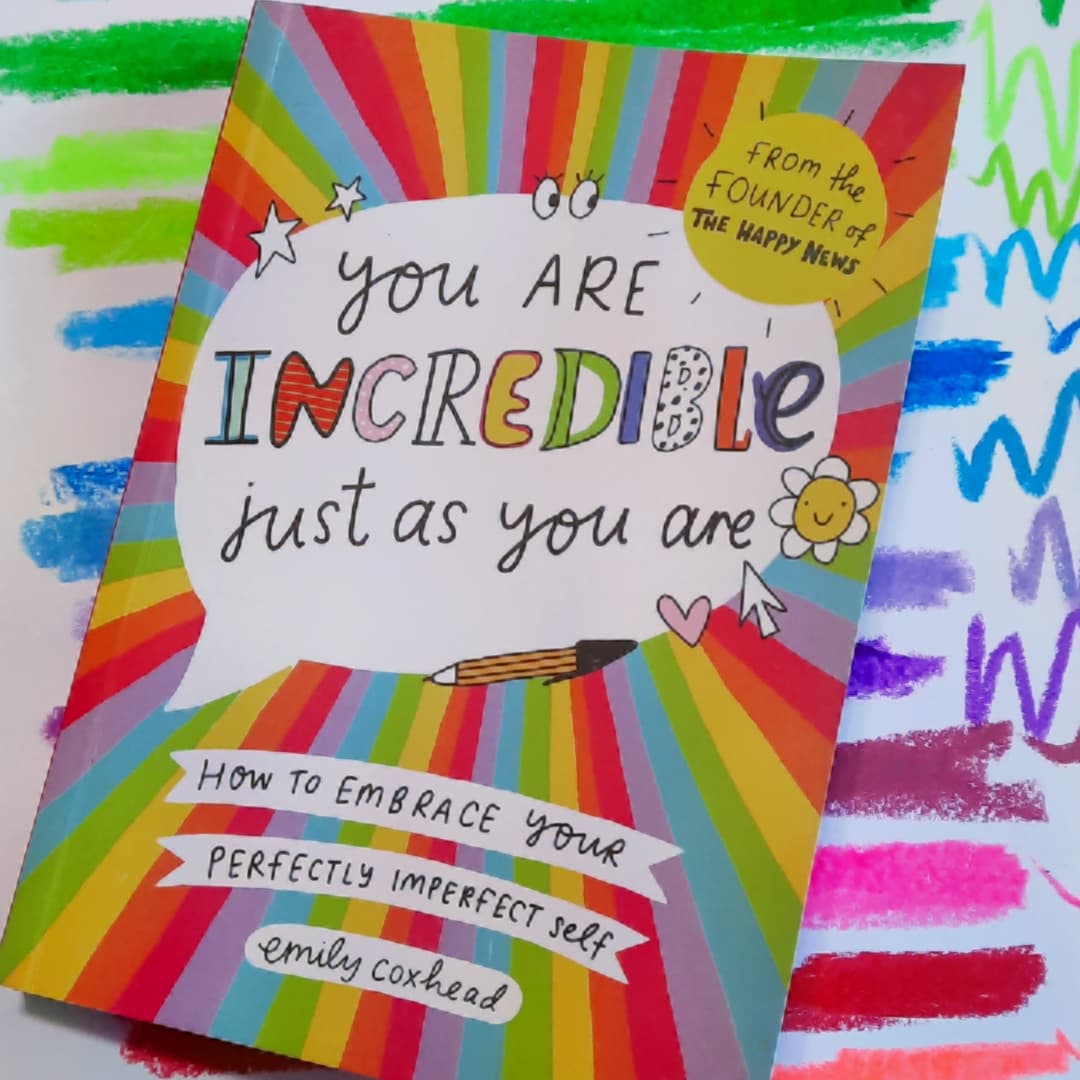 FROM the
FOUNDER of
THE HAPPY NEWS
you ARE
INCREDIBLe
just as you are
HOW TO EMBRACE YOUR
PERFECTLY IMPERFECT self
emily coxhead